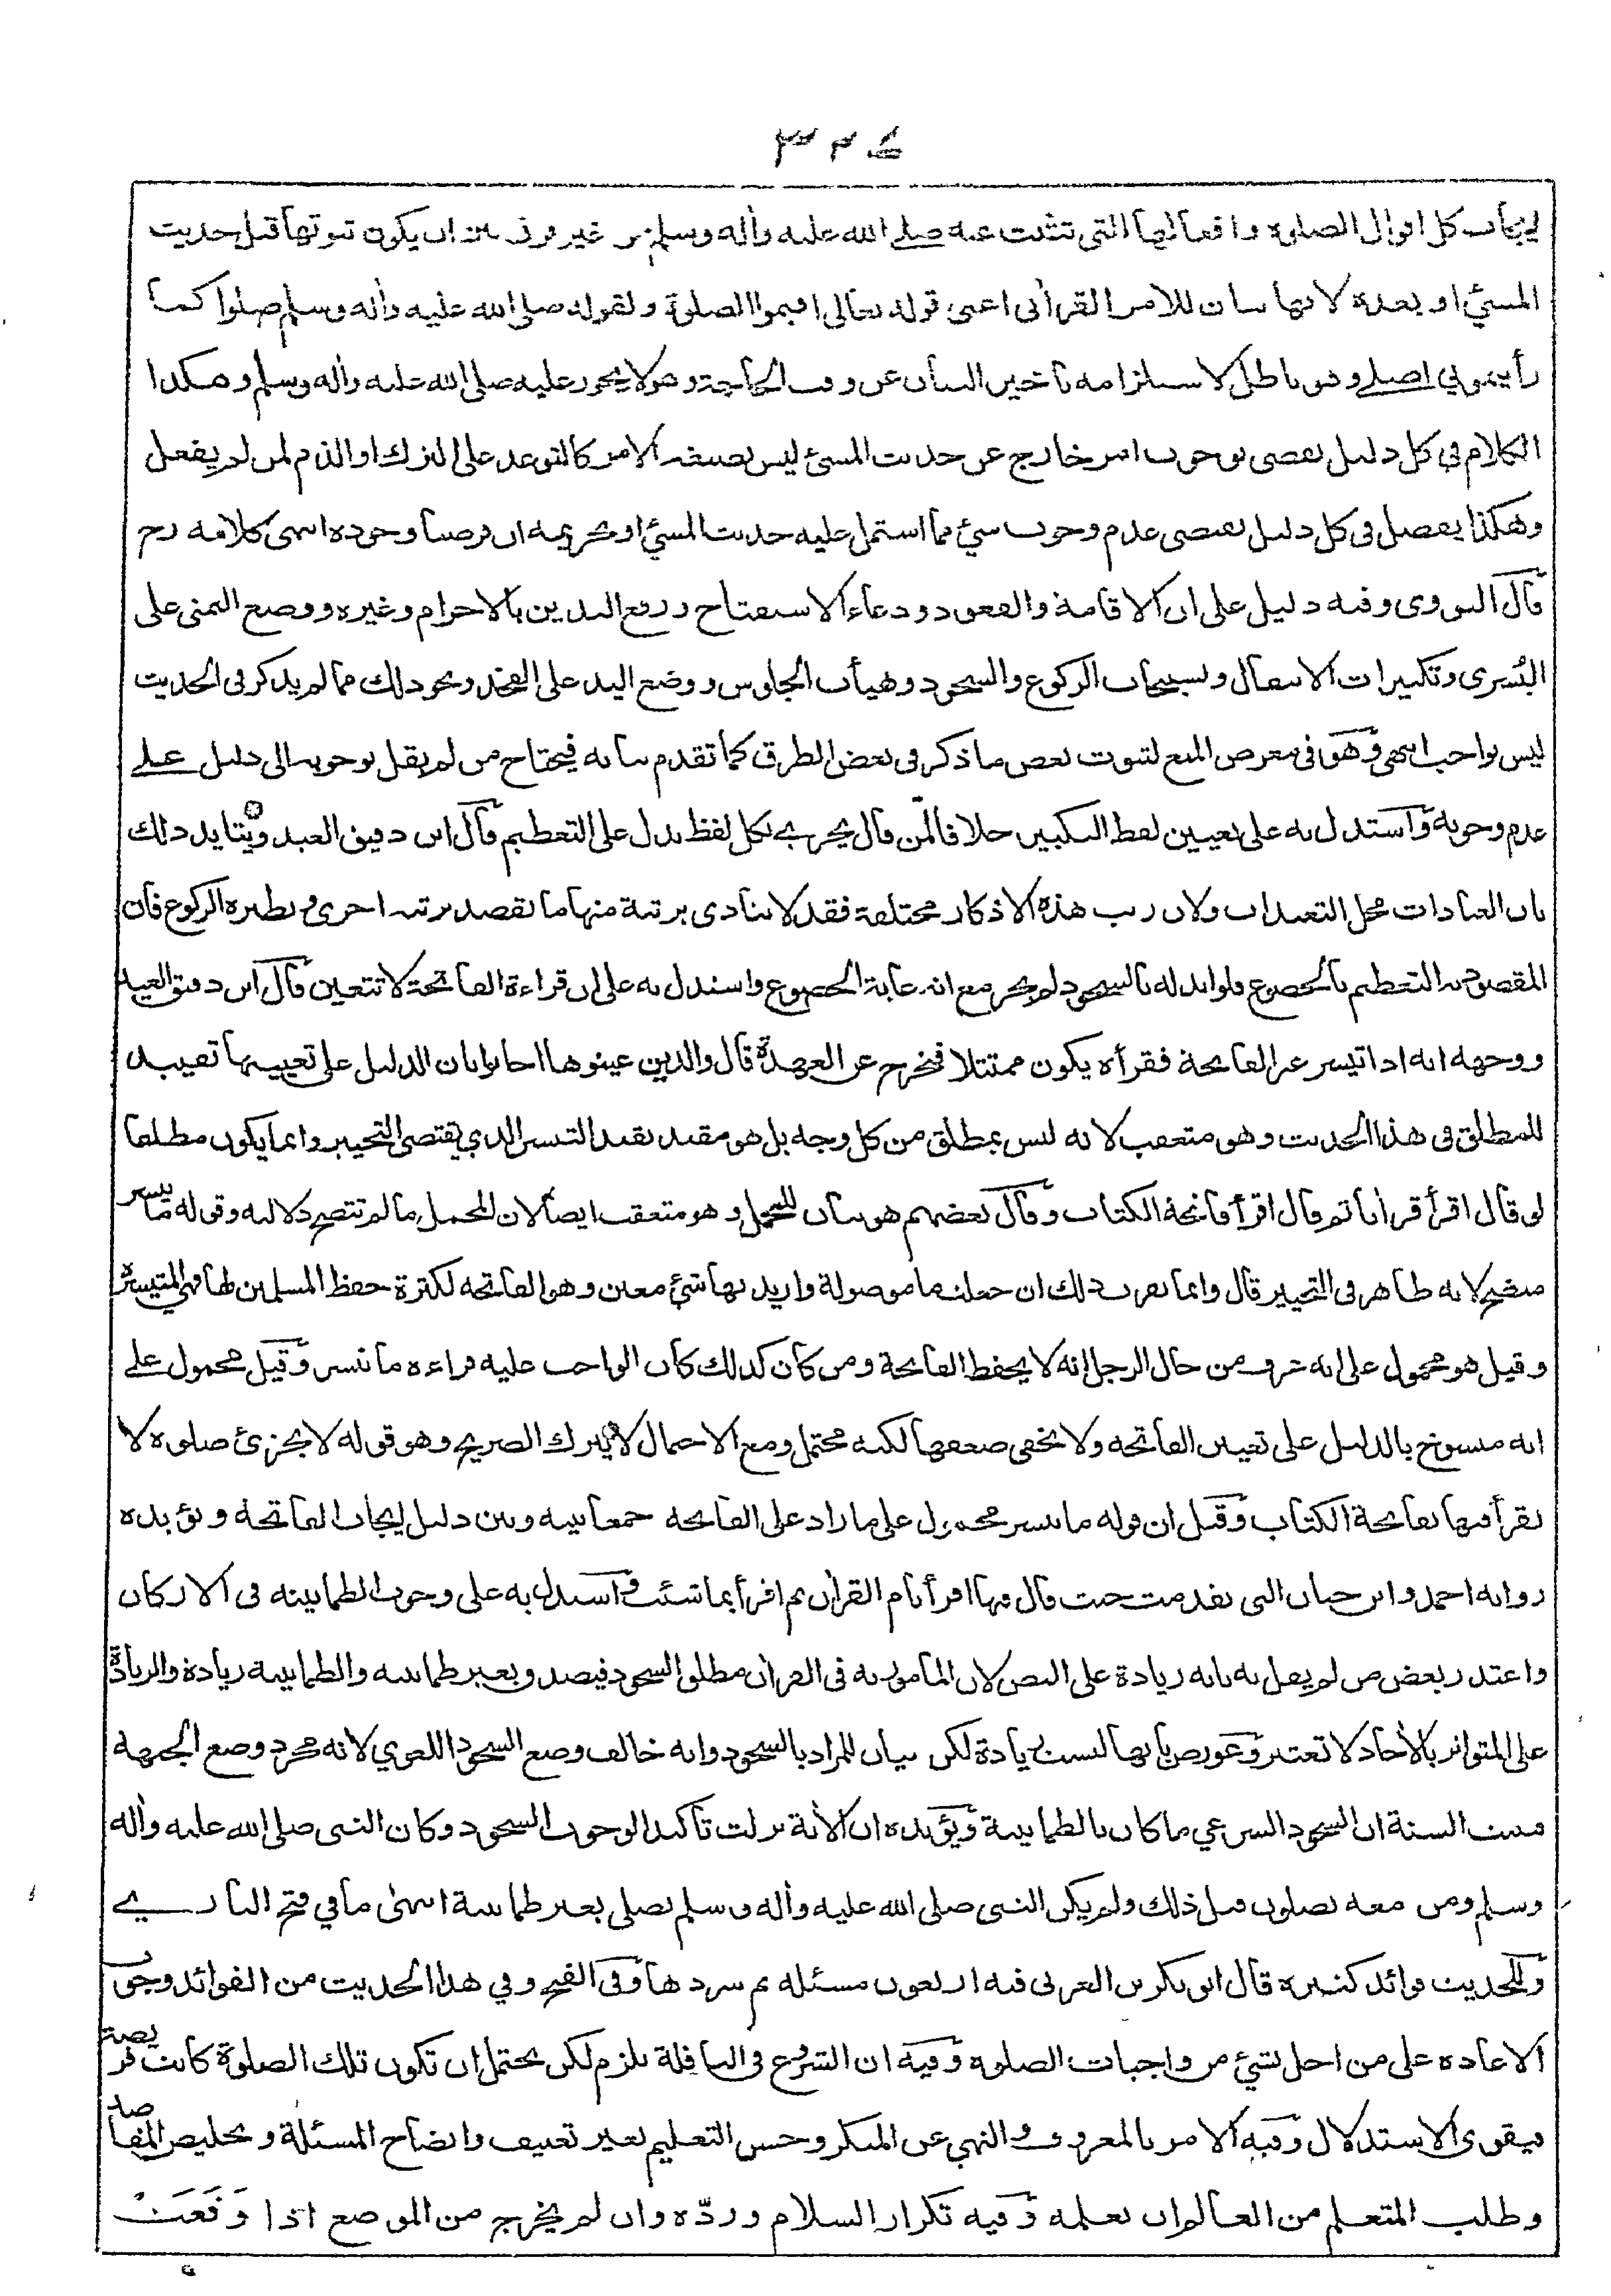 ٣٢٤
لايجاب كل اقوال الصلوة وافعالها التى تثبت عنه صلے الله عليه واٰله وسلم من غير فرق بين ان يكون ثبوتها قبل حديث
المسئ او بعده لانها بيان للامر القراٰنى اعنى قوله تعالى اقيموا الصلوة ولقوله صلى الله عليه واٰله وسلم صلوا كما
رأيتمونى اصلے وهو باطل لاستلزامه تأخير البيان عن وقت الحاجة وهو لا يجوز عليه صلى الله عليه واٰله وسلم وهكذا
الكلام فى كل دليل يقضى بوجوب امر خارج عن حديث المسئ ليس بصيغة الامر كالتوعد على الترك او الذم لمن لم يفعل
وهكذا يفصل فى كل دليل يقتضى عدم وجوب شئ مما اشتمل عليه حديث المسئ او تحريمه ان فرضنا وجوده انتهى كلامه رح
قال النووى وفيه دليل على ان الاقامة والقعود ودعاء الاستفتاح ورفع اليدين بالاحرام وغيره ووضع اليمنى على
اليُسرى وتكبيرات الانتقال وتسبيحات الركوع والسجود وهيأت الجلوس ووضع اليد على الفخذ ونحو ذلك مما لم يذكر فى الحديث
ليس بواجب انتهى وهو فى معرض المنع لثبوت بعض ما ذكر فى بعض الطرق كما تقدم بيانه فيحتاج من لم يقل بوجوبه الى دليل علے
عدم وجوبه واستدل به على تعيين لفظ التكبير خلافا لمن قال يجزئ بكل لفظ يدل على التعظيم قال ابن دقيق العبد ويتايد ذلك
بان العبادات محل التعبدات ولان رتب هذه الاذكار مختلفة فقد لا يتادى برتبة منها ما يقصد برتبة اخرى ونظيره الركوع فان
المقصود به التعظيم بالخضوع فلو ابدله بالسجود لم يجز مع انه غاية الخضوع واستدل به على ان قراءة الفاتحة لا تتعين قال ابن دقيق العيد
ووجهه انه اذا تيسر غير الفاتحة فقرأه يكون ممتثلا فيخرج عن العهدة قال والذين عينوها اجابوا بان الدليل على تعيينها تقييد
للمطلق فى هذا الحديث وهو متعقب لانه ليس بمطلق من كل وجه بل هو مقيد بقيد التيسر الذي يقتضى التخيير وانما يكون مطلقا
لو قال اقرأ قراٰنا ثم قال اقرأ فاتحة الكتاب وقال بعضهم هو بيان للمجمل وهو متعقب ايضا لان المجمل ما لم تتضح دلالته وقوله ما تيسر
متضح لانه ظاهر فى التخيير قال وانما يقرب ذلك ان جعلت ما موصولة واريد بها شئ معين وهو الفاتحة لكثرة حفظ المسلمين لها فهي المتيسرة
وقيل هو محمول على انه عرف من حال الرجل انه لا يحفظ الفاتحة ومن كان كذلك كان الواجب عليه قراءه ما تيسر وقيل محمول على
انه منسوخ بالدليل على تعيين الفاتحه ولا يخفى ضعفها لكنه محتمل ومع الاحتمال لا يترك الصريح وهو قوله لا تجزئ صلوة لا
يقرأ فيها بفاتحة الكتاب وقيل ان قوله ما تيسر محمول على ما زاد على الفاتحه جمعا بينه وبين دليل ايجاب الفاتحة ويؤيده
روايه احمد وابن حبان التى تقدمت حيث قال فيها اقرأ بام القراٰن ثم اقرأ بما شئت واستدل به على وجوب الطمانينه فى الاركان
واعتذر بعض من لم يقل به بانه زيادة على النص لان المأمور به فى القراٰن مطلق السجود فيصدق بغير طمانينه والطمانينة زيادة والزيادة
على المتواتر بالأحاد لا تعتبر وعورض بانها ليست زيادة لكن بيان للمراد بالسجود وانه خالف وضع السجود اللغوي لانه مجرد وضع الجبهة
فبينت السنة ان السجود الشرعي ما كان بالطمانينة ويؤيده ان الاٰية نزلت تأكيدا لوجوب السجود وكان النبى صلى الله عليه واٰله
وسلم ومن معه يصلون قبل ذلك ولم يكن النبى صلى الله عليه واٰله وسلم يصلى بغير طمانينة انتهى ما في فتح الباري
وللحديث فوائد كثيرة قال ابو بكر بن العربى فيه اربعون مسئله ثم سردها وفى الفتح وفي هذا الحديث من الفوائد وجوب
الاعاده على من اخل بشئ من واجبات الصلوه وفيه ان الشروع فى النافلة ملزم لكن يحتمل ان تكون تلك الصلوة كانت فريضة
فيقوى الاستدلال وفيه الامر بالمعروف والنهي عن المنكر وحسن التعليم بغير تعنيف وايضاح المسئلة وتخليص المقاصد
وطلب المتعلم من العالم ان يعلمه وفيه تكرار السلام وردّه وان لم يخرج من الموضع اذا وَقَعَتْ